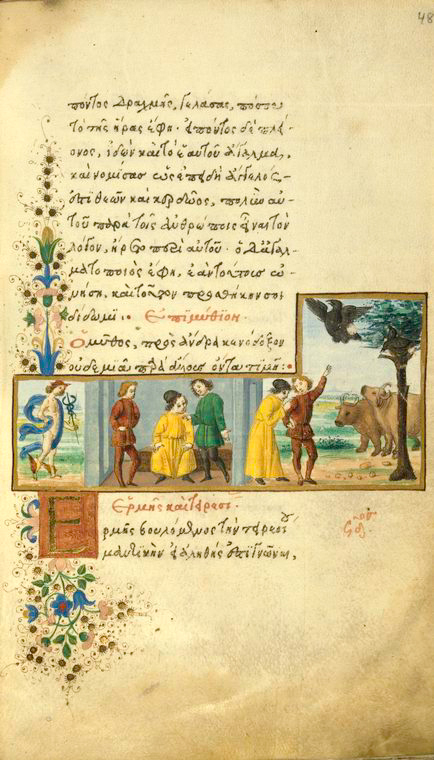 48
πόντος δραχμῆς, γελάσας, πόσου
τὸ τῆς ἥρας ἔφη. εἰπόντος δὲ πλεί-
ονος, ἰδὼν καὶ τὸ ἑαυτοῦ ἄγαλμα,
καὶ νομίσας ὡς ἐπειδὴ ἄγγελός ἐ-
στι θεῶν καὶ κερδῷος, πολὺν αὐ-
τοῦ παρὰ τοῖς ἀνθρώποις εἶναι τὸν
λόγον, ἤρετο περὶ αὐτοῦ. ὁ δ' ἀγαλ-
ματοποιὸς ἔφη, ἐὰν τούτους ὠ-
νήσῃ, καὶ τοῦτον προσθήκην σοι
δίδωμι. Ἐπιμύθιον.
Ὁ μῦθος, πρὸς ἄνδρα κενόδοξον
οὐδεμιᾷ παρὰ ἄλλοις ὄντα τιμῇ:
Ἑρμῆς καὶ τειρεσί.
Ἑρμῆς βουλόμενος τὴν τειρεσίου
μαντικὴν εἰ ἀληθής ἐστι γνῶναι,